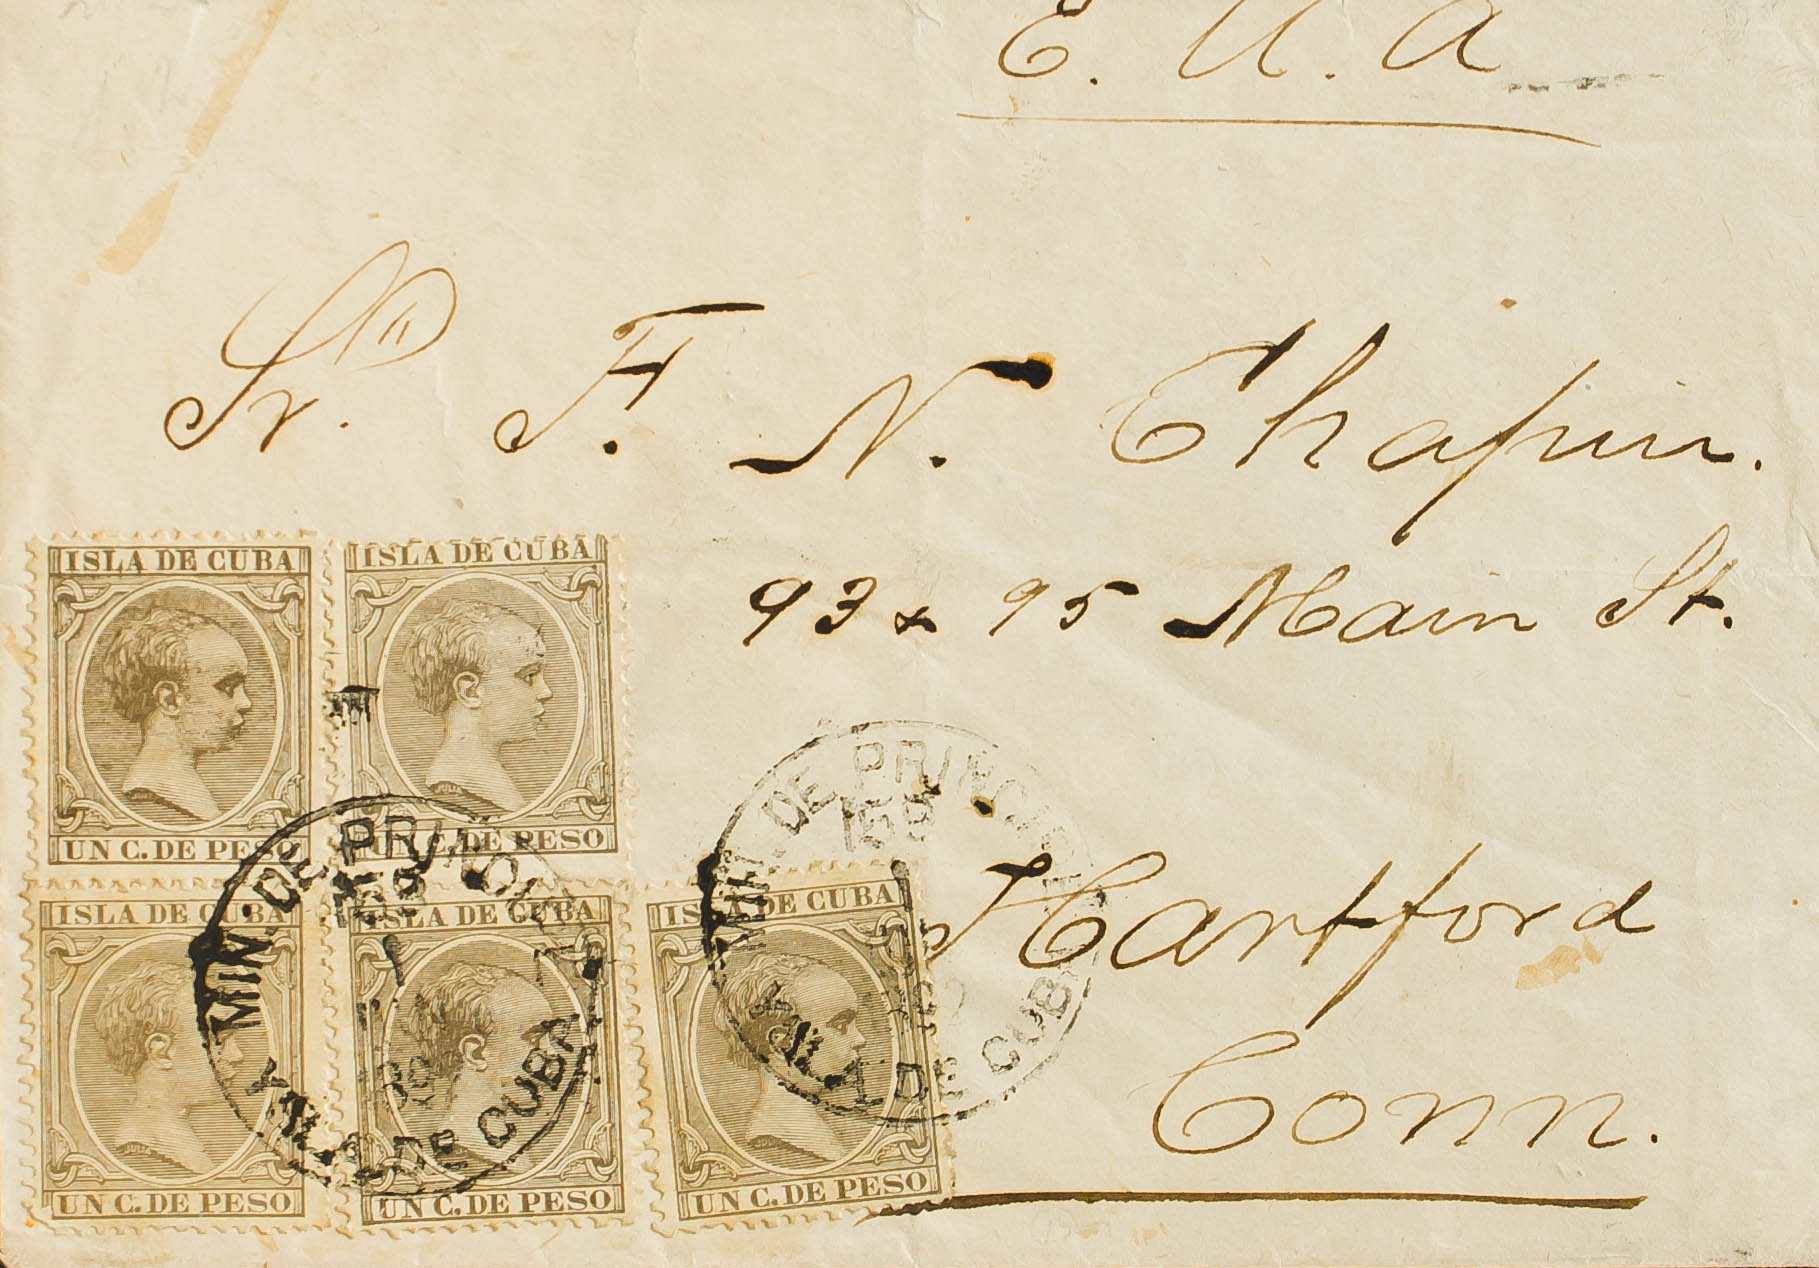 E. U. A
Sr. D. F. N. Chapin.
93 & 95 Main St.
Hartford
Conn.
ISLA DE CUBA
UN C. DE PESO
ISLA DE CUBA
UN C. DE PESO
ISLA DE CUBA
UN C. DE PESO
ISLA DE CUBA
UN C. DE PESO
ISLA DE CUBA
UN C. DE PESO
MIN. DE PRINCIPAL
DE CUBA
MIN. DE PRINCIPAL
DE CUBA